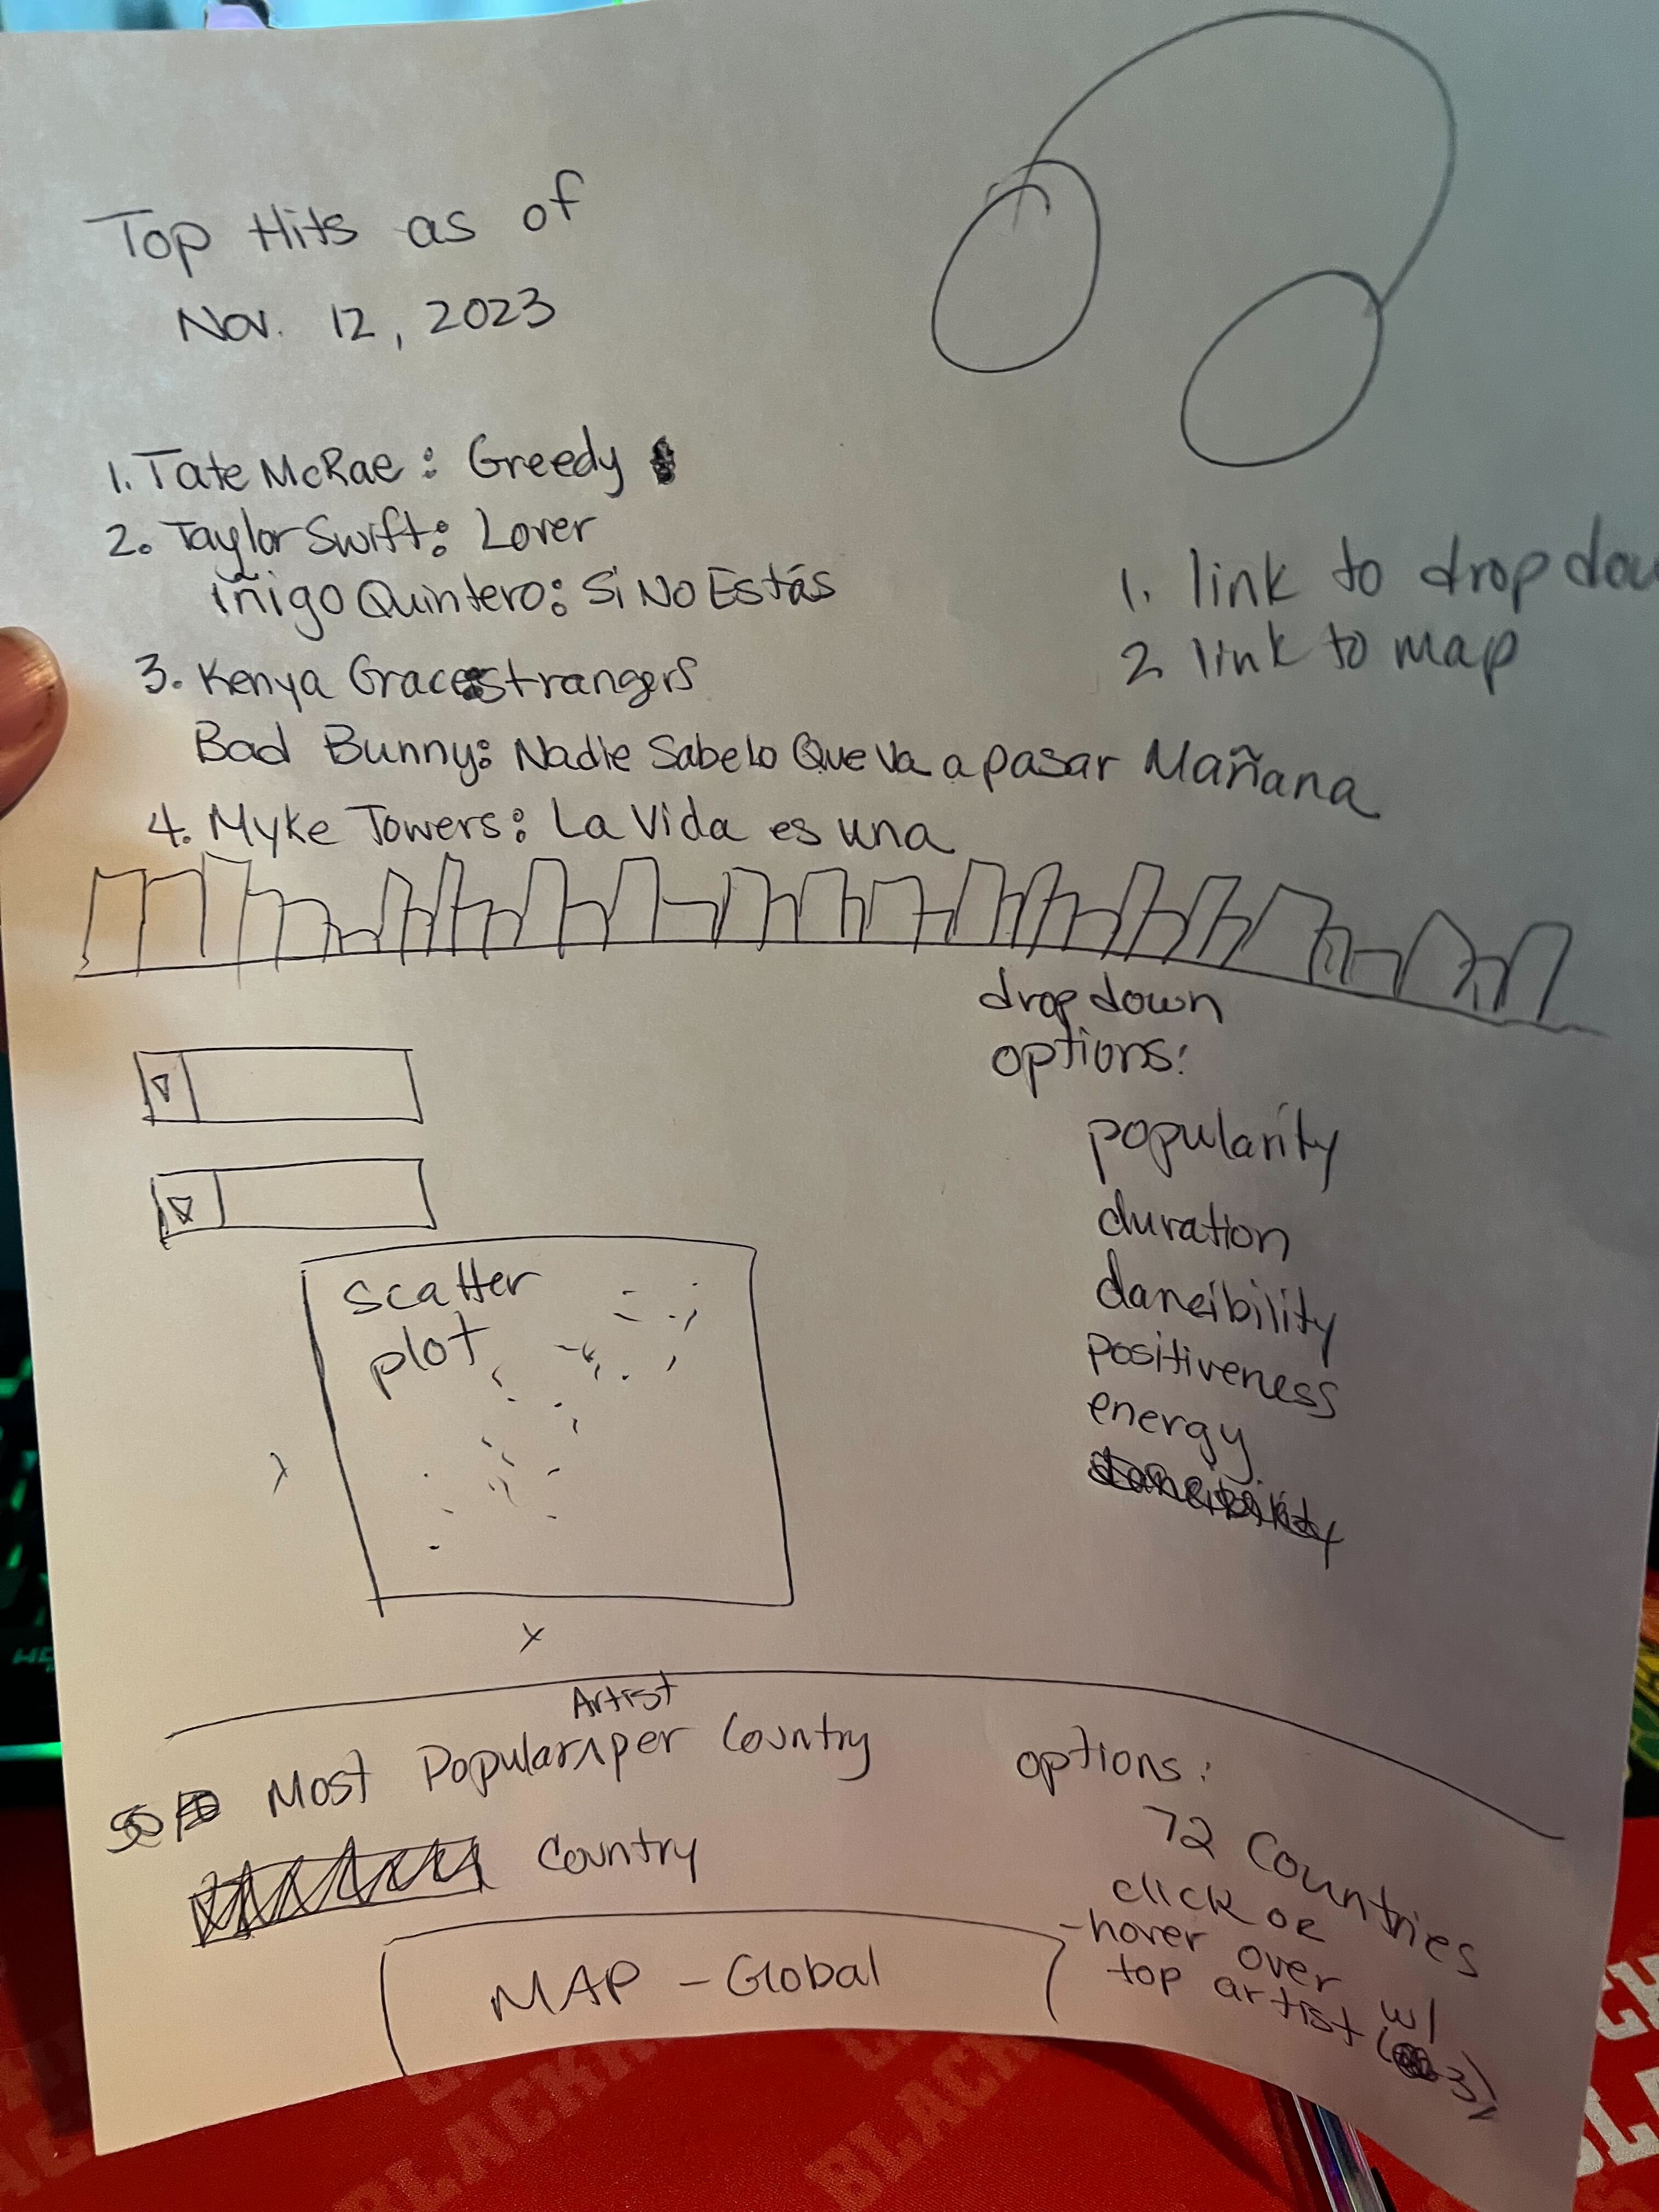 Top Hits as of
Nov. 12, 2023
1. Tate McRae: Greedy
2. Taylor Swift: Lover
iñigo Quintero: Si No Estás
3. Kenya Grace strangers
Bad Bunny: Nadie Sabe lo Que Va a pasar Mañana
4. Myke Towers: La Vida es una
1. link to drop dow
2 link to map
drop down
options:
popularity
duration
dancibility
positiveness
energy
scatter
plot
y
x
Artist
Most Popular ^ per Country
Country
MAP - Global
options:
72 Countries
click or
-hover over w/
top artist (3)
BLACK